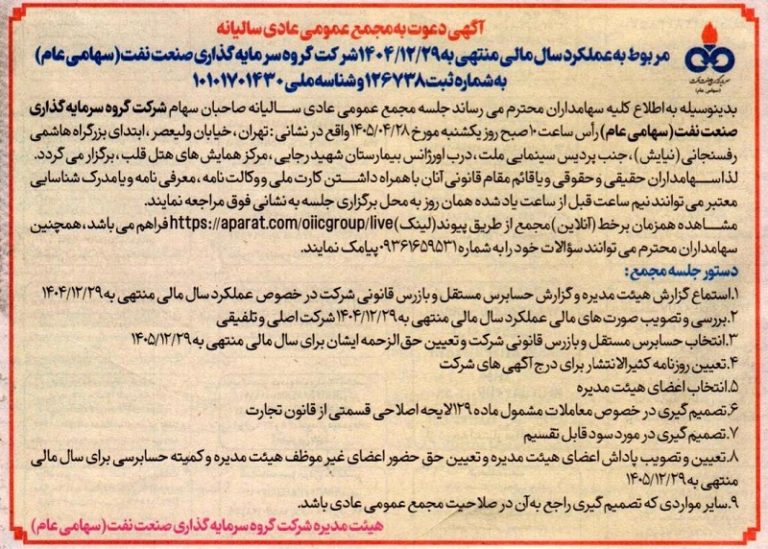 آگهی دعوت به مجمع عمومی عادی سالیانه
مربوط به عملکرد سال مالی منتهی به ۱۴۰۴/۱۲/۲۹ شرکت گروه سرمایه گذاری صنعت نفت (سهامی عام)
به شماره ثبت ۱۲۶۷۳۸ و شناسه ملی ۱۰۱۰۱۷۰۱۴۳۰
بدینوسیله به اطلاع کلیه سهامداران محترم می رساند جلسه مجمع عمومی عادی سالیانه صاحبان سهام شرکت گروه سرمایه گذاری
صنعت نفت (سهامی عام) رأس ساعت ۱۰ صبح روز یکشنبه مورخ ۱۴۰۵/۰۴/۲۸ واقع در نشانی: تهران، خیابان ولیعصر، ابتدای بزرگراه هاشمی
رفسنجانی (نیایش)، جنب پردیس سینمایی ملت، درب اورژانس بیمارستان شهید رجایی، مرکز همایش های هتل قلب، برگزار می گردد.
لذا سهامداران حقیقی و حقوقی و یا قائم مقام قانونی آنان با همراه داشتن کارت ملی و وکالت نامه، معرفی نامه و یا مدرک شناسایی
معتبر می توانند نیم ساعت قبل از ساعت یاد شده همان روز به محل برگزاری جلسه به نشانی فوق مراجعه نمایند.
مشاهده همزمان برخط (آنلاین) مجمع از طریق پیوند (لینک) https://aparat.com/oiicgroup/live فراهم می باشد، همچنین
سهامداران محترم می توانند سؤالات خود را به شماره ۰۹۳۶۱۶۵۹۵۳۱ پیامک نمایند.
دستور جلسه مجمع:
۱. استماع گزارش هیئت مدیره و گزارش حسابرس مستقل و بازرس قانونی شرکت در خصوص عملکرد سال مالی منتهی به ۱۴۰۴/۱۲/۲۹
۲. بررسی و تصویب صورت های مالی عملکرد سال مالی منتهی به ۱۴۰۴/۱۲/۲۹ شرکت اصلی و تلفیقی
۳. انتخاب حسابرس مستقل و بازرس قانونی شرکت و تعیین حق الزحمه ایشان برای سال مالی منتهی به ۱۴۰۵/۱۲/۲۹
۴. تعیین روزنامه کثیرالانتشار برای درج آگهی های شرکت
۵. انتخاب اعضای هیئت مدیره
۶. تصمیم گیری در خصوص معاملات مشمول ماده ۱۲۹ لایحه اصلاحی قسمتی از قانون تجارت
۷. تصمیم گیری در مورد سود قابل تقسیم
۸. تعیین و تصویب پاداش اعضای هیئت مدیره و تعیین حق حضور اعضای غیر موظف هیئت مدیره و کمیته حسابرسی برای سال مالی
منتهی به ۱۴۰۵/۱۲/۲۹
۹. سایر مواردی که تصمیم گیری راجع به آن در صلاحیت مجمع عمومی عادی باشد.
هیئت مدیره شرکت گروه سرمایه گذاری صنعت نفت (سهامی عام)